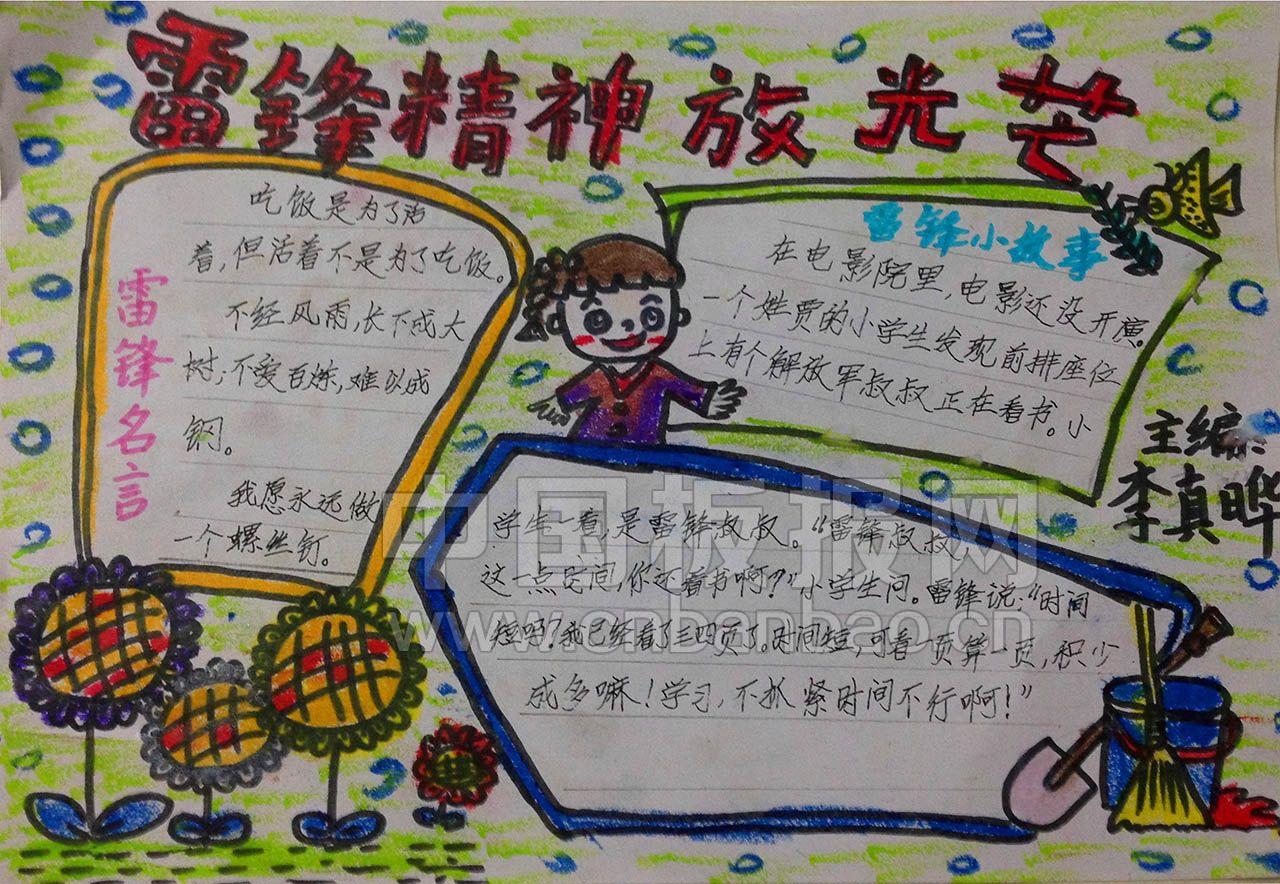 雷锋精神放光芒
雷锋名言
吃饭是为了活
着，但活着不是为了吃饭。
不经风雨，长不成大
树；不受百炼，难以成
钢。
我愿永远做
一个螺丝钉。
雷锋小故事
在电影院里，电影还没开演。
一个姓贾的小学生发现前排座位
上有个解放军叔叔正在看书。小
学生一看，是雷锋叔叔。“雷锋叔叔
这一点时间，你还看书啊？”小学生问。雷锋说：“时间
短吗？我已经看了三四页了。时间短，可看一页算一页，积少
成多嘛！学习，不抓紧时间不行啊！”
主编：
李真晔
中国板报网
www.cnbanbao.cn